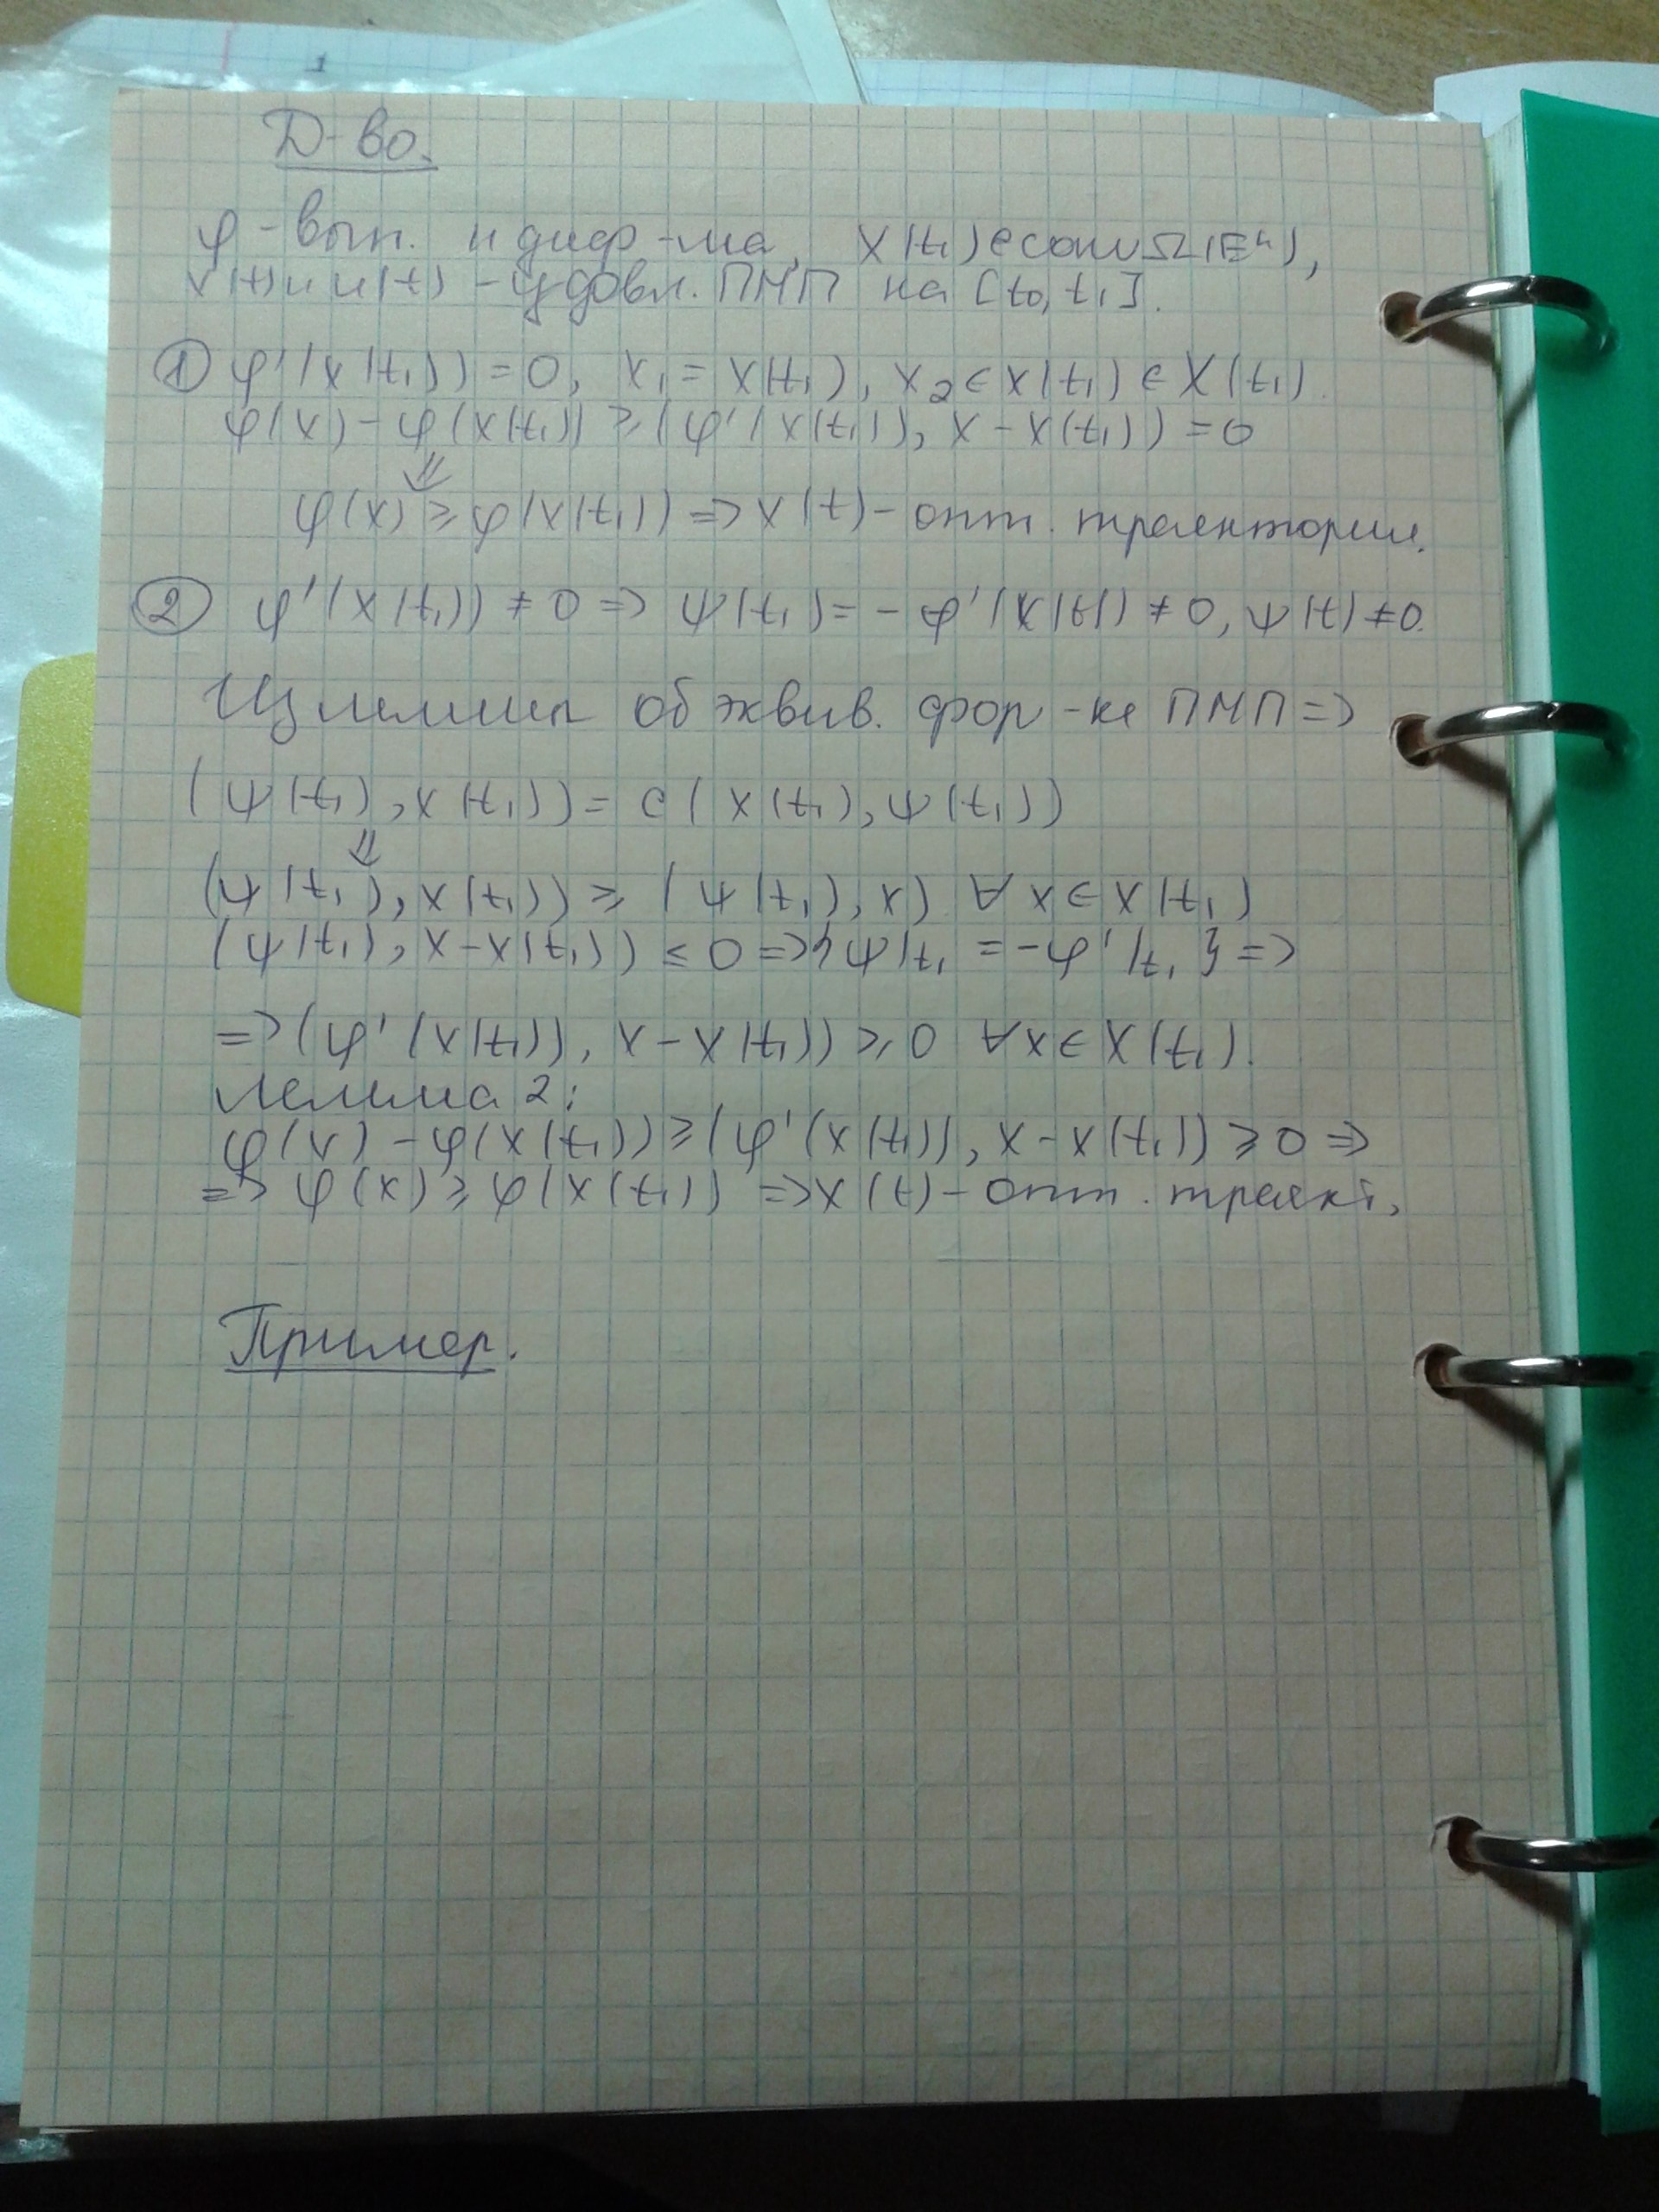 Д-во.
φ - вып. и диф-ма, X(t₁) ∈ conv Ω(Eⁿ),
x(t) и u(t) - удовл. ПМП на [t₀, t₁].
① φ'(x(t₁)) = 0, x₁ = x(t₁), x₂ ∋ x(t₁) ∈ X(t₁).
φ(x) - φ(x(t₁)) ≥ (φ'(x(t₁)), x - x(t₁)) = 0
⇓
φ(x) ≥ φ(x(t₁)) => x(t) - опт. траектория.
② φ'(x(t₁)) ≠ 0 => ψ(t₁) = - φ'(x(t₁)) ≠ 0, ψ(t) ≠ 0.
Из леммы об эквив. фор-ке ПМП =>
(ψ(t₁), x(t₁)) = c(X(t₁), ψ(t₁))
⇓
(ψ(t₁), x(t₁)) ≥ (ψ(t₁), x) ∀ x ∈ X(t₁)
(ψ(t₁), x - x(t₁)) ≤ 0 => {ψ(t₁ = -φ'(t₁} =>
=> (φ'(x(t₁)), x - x(t₁)) ≥ 0 ∀x ∈ X(t₁).
Лемма 2:
φ(x) - φ(x(t₁)) ≥ (φ'(x(t₁)), x - x(t₁)) ≥ 0 =>
=> φ(x) ≥ φ(x(t₁)) => x(t) - опт. траект.
Пример.